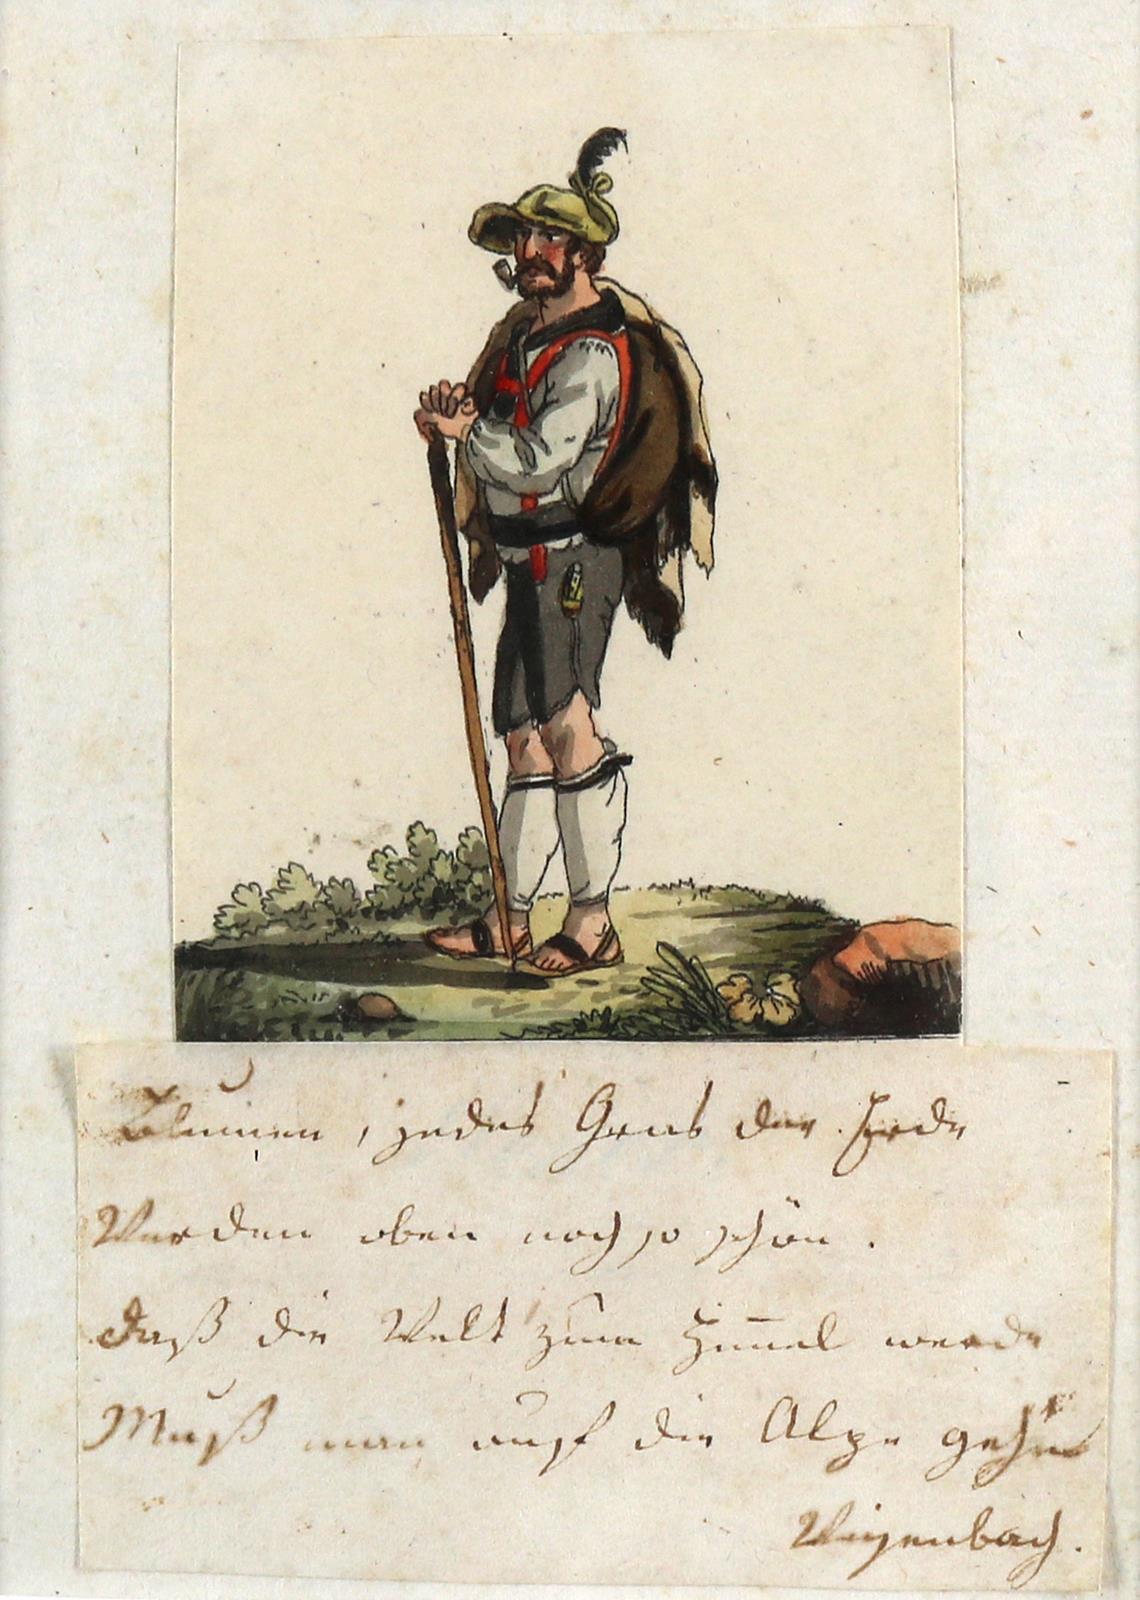 Blumen, jedes Gras der Erde
Werden oben noch so schön.
Daß die Welt zum Him̅el werde
Muß man auf die Alpe gehn